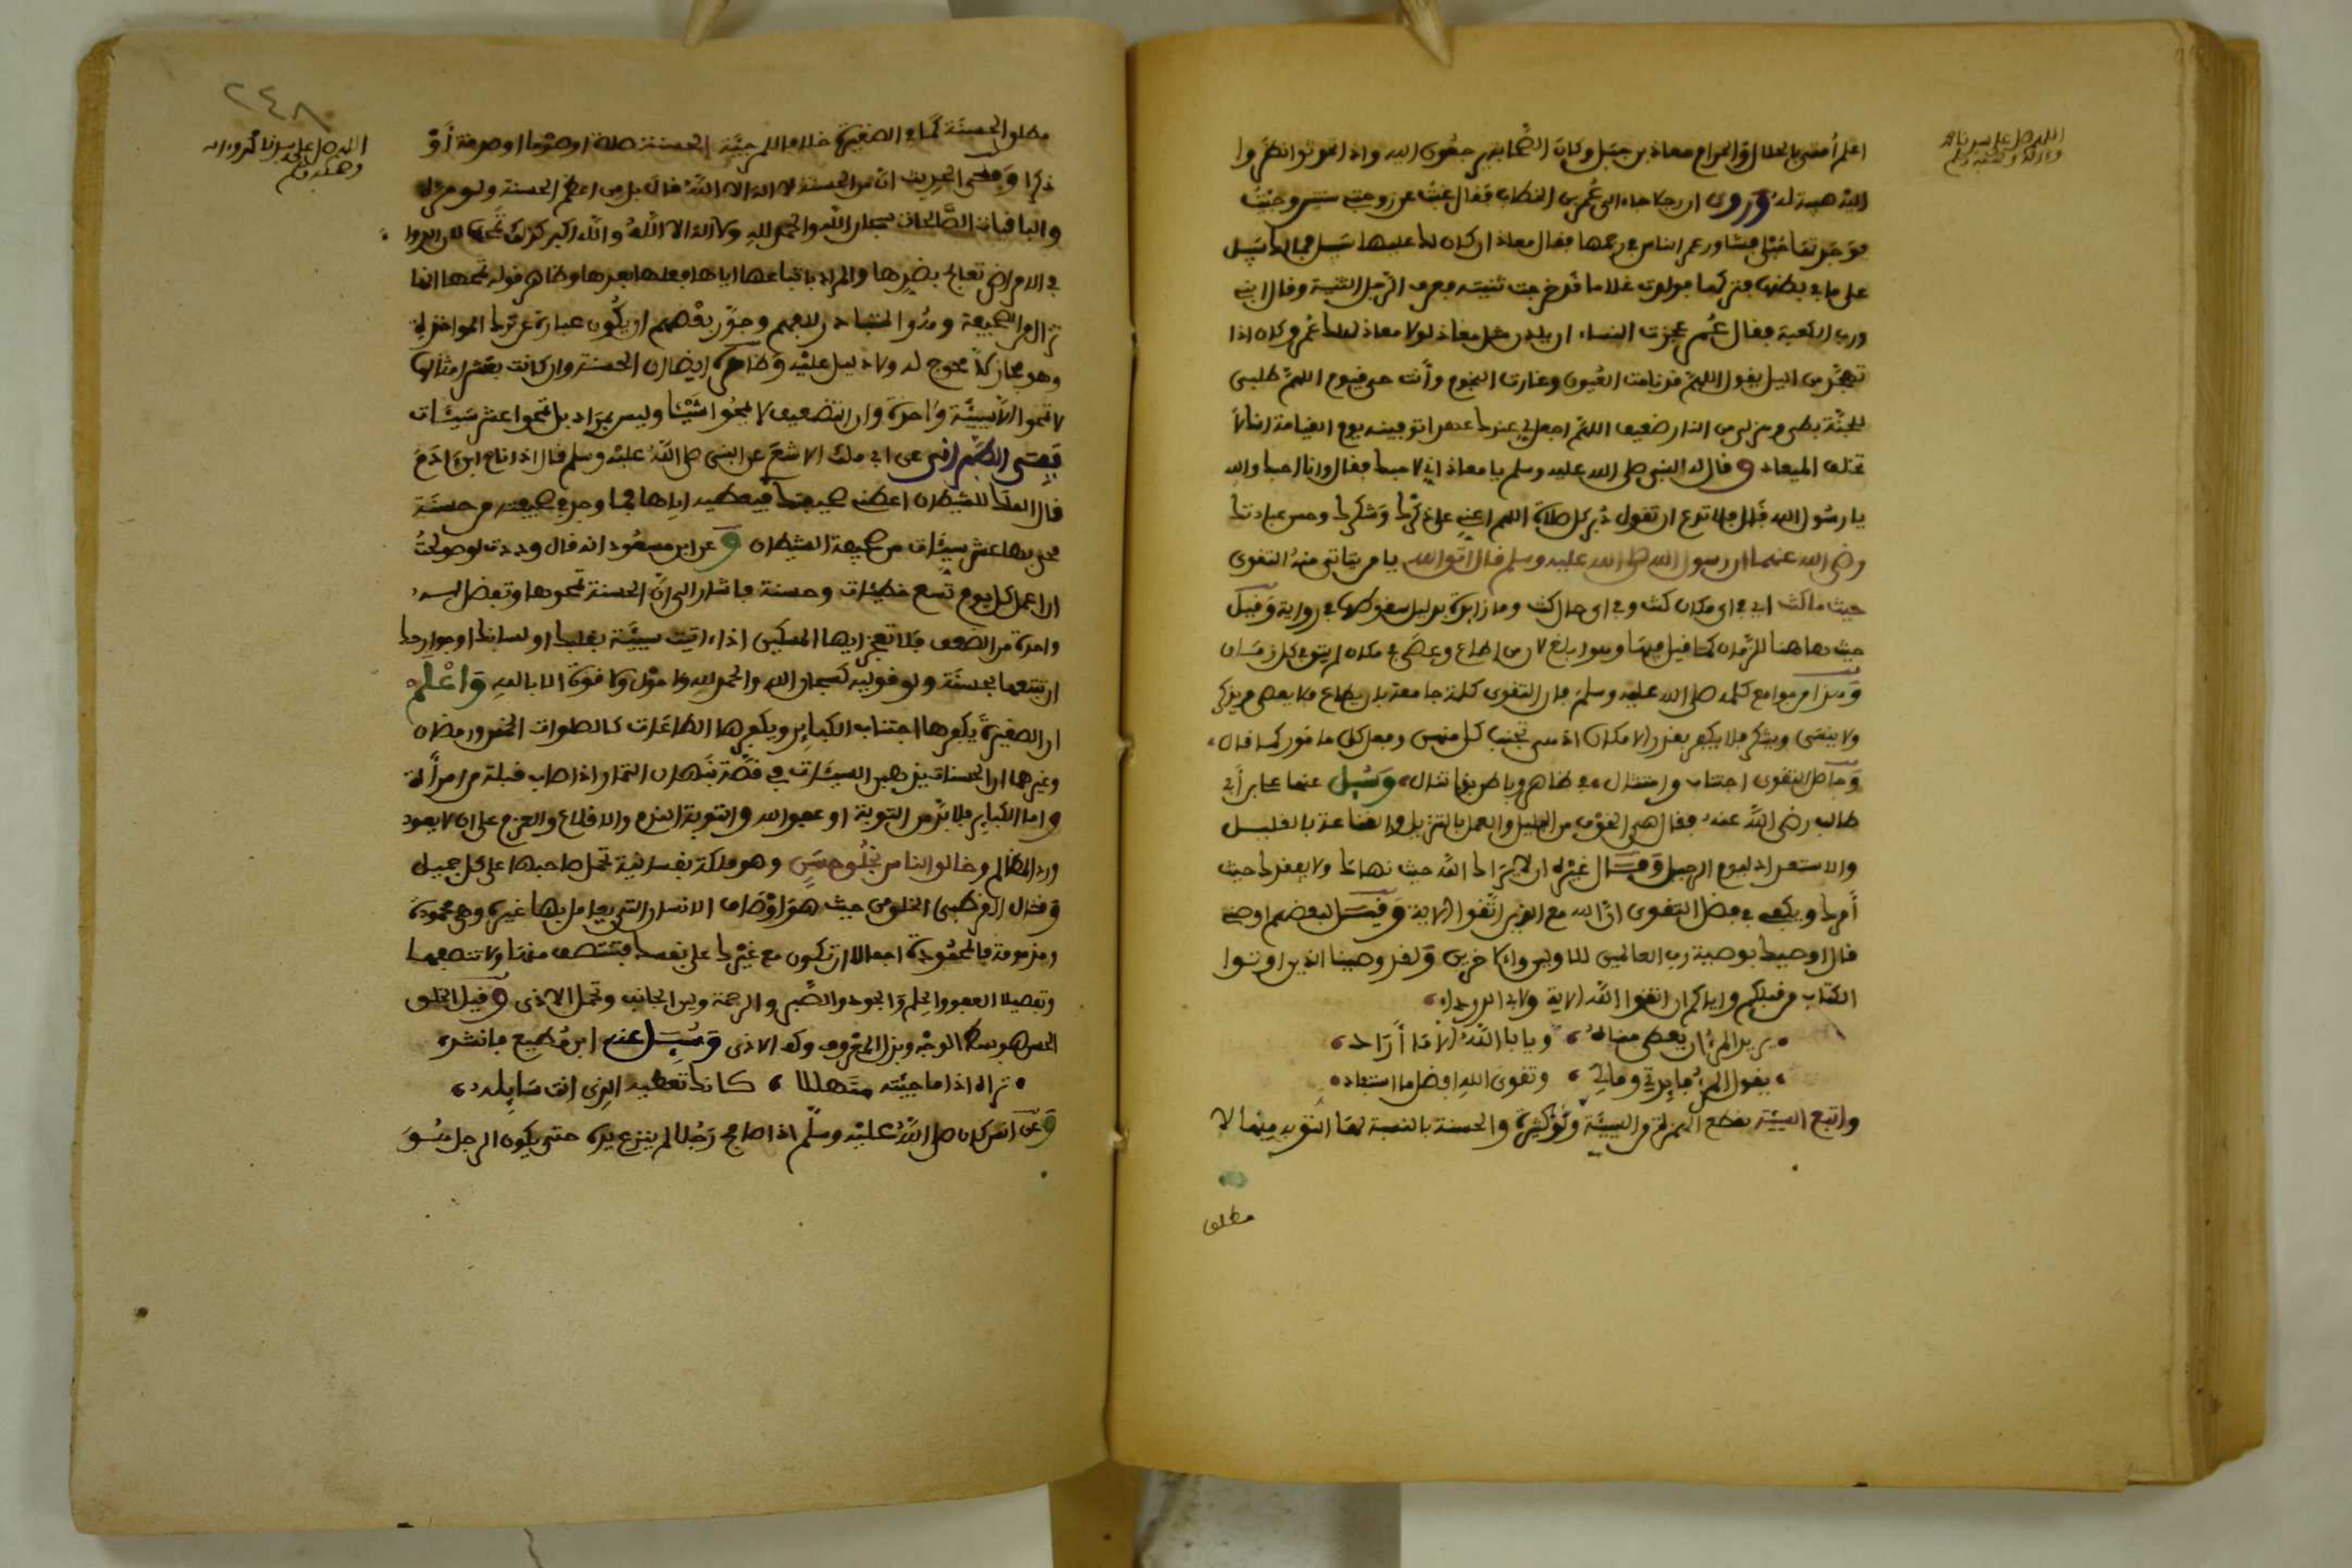 اللهم صل على سيدنا محمد
وءاله وصحبه وسلم
اعلم أمتي بالحلال والحرام معاذ بن جبل وكان الصحابة يرجعون اليه واذا تحدثوا نظروا
اليه هيبة له وروى ان رجلا جاء الى عمر بن الخطاب فقال غبت عن زوجتي سنتين وجئت
فوجدتها حبلى فشاور عمر الناس في رجمها فقال معاذ ان كان لك عليها سبيل فما لك سبيل
على ما في بطنها فتركها فولدت غلاما قد خرجت ثنيته فعرف الرجل الشبه وقال ابني
ورب الكعبة فقال عمر عجزت النساء ان يلدن مثل معاذ لولا معاذ لهلك عمر وكان اذا
تهجد من الليل يقول اللهم قد نامت العيون وغارت النجوم وأنت حي قيوم اللهم طلبي
للجنة بطيء وهربي من النار ضعيف اللهم اجعل لي عندك عهدا توفينه يوم القيامة انك لا
تخلف الميعاد وقال له النبي صلى الله عليه وسلم يا معاذ اني لاحبك فقال وانا احبك والله
يا رسول الله قال فلا تدع ان تقول دبر كل صلاة اللهم اعني على ذكرك وشكرك وحسن عبادتك
رضي الله عنهما ان رسول الله صلى الله عليه وسلم قال اتق الله يا من يتأتى منه التقوى
حيث ما كنت اي في اي مكان كنت وفي اي حال كنت وما زائدة بدليل سقوطها في رواية وقيل
حيث هاهنا للزمان كما قيل وهو ابلغ لان من اطاع وعصى في مكان لم يتق في كل زمان
وهذا من جوامع كلمه صلى الله عليه وسلم فان التقوى كلمة جامعة بان يطاع فلا يعصى ويذكر
ولا ينسى ويشكر فلا يكفر بقدر الامكان اذ هي تجنب كل منهي وفعل كل مامور كما قال
وحاصل التقوى اجتناب وامتثال في ظاهر وباطن بذا تنال وسئل عنها علي بن أبي
طالب رضي الله عنه فقال هي الخوف من الجليل والعمل بالتنزيل والقناعة بالقليل
والاستعداد ليوم الرحيل وقال غيره ان لا يراك الله حيث نهاك ولا يفقدك حيث
أمرك ويكفي في فضل التقوى ان الله مع الذين اتقوا الاية وقيل لبعضهم اوصني
قال اوصيك بوصية رب العالمين للاولين والاخرين ولقد وصينا الذين اوتوا
الكتاب من قبلكم واياكم ان اتقوا الله الاية ولابي الدرداء
يريد المرء ان يعطى مناه ويابى الله الا ما أراد
يقول المرء فايدتي ومالي وتقوى الله افضل ما استفاد
واتبع السيئة بقطع الهمزة من السيئة ولو كبيرة والحسنة بالنسبة لها التوبة منها لا
مطلق
٢٤٨
اللهم صل على سيدنا محمد وءاله
وصحبه وسلم
مطلق الحسنة كما في الصغيرة خلافا الحسنة صلاة او صوما او صدقة أو
ذكرا وفي الحديث ان من الحسنة لا اله الا الله قال بل من اعظم الحسنة
والباقيات الصالحات سبحان الله والحمد لله ولا اله الا الله والله اكبر كذلك تمحها
في الامراض تعالج بضدها والمراد باتباعها اياها فعلها بعدها وظاهر قوله تمحها انها
تزال من الصحيفة وهو المتبادر للفهم وجوز بعضهم ان يكون عبارة عن ترك المواخذة
وهو مجاز لا محوج له ولا دليل عليه وظاهره ايضا ان الحسنة وان كانت بعشر امثالها
لا تمحو الا سيئة واحدة وان التضعيف لا يمحو شيئا وليس بمراد بل تمحو عشر سيئات
فعند الطبراني عن ابي مالك الاشعري عن النبي صلى الله عليه وسلم قال اذا نام ابن ادم
قال الملك للشيطان اعطني صحيفتك فيعطيه اياها فما وجد في صحيفته من حسنة
محى بها عشر سيئات من صحيفة الشيطان وعن ابن مسعود انه قال وددت لو صولحت
ان اعمل كل يوم تسع خطيئات وحسنة فاشار الى ان الحسنة تمحوها وتفضل له
واحدة من الضعف فلا تعجز ايها المسكين اذا اتيت سيئة بقلبك او لسانك او جوارحك
ان تتبعها بحسنة ولو قوليه كسبحان الله والحمد لله ولا حول ولا قوة الا بالله واعلم
ان الصغيرة يكفرها اجتناب الكبائر ويكفرها الطاعات كالصلوات الخمس ورمضان
وغيرها ان الحسنات يذهبن السيئات في قصة نبهان التمار اذ اصاب قبلة من امرأة
واما الكبائر فلا بد من التوبة او عفو الله والتوبة الندم والاقلاع والعزم على ان لا يعود
ورد المظالم وخالق الناس بخلق حسن وهو ملكة نفسانية تحمل صاحبها على كل جميل
وقال القرطبي الخلق من حيث هو اوصاف الانسان التي يعامل بها غيره وهي محمودة
ومذمومة فالمحمودة اجمالا ان تكون مع غيرك على نفسك فتنتصف منها ولا تنصفها
وتفصيلا العفو والحلم والجود والصبر والرحمة ولين الجانب وتحمل الاذى وقيل الخلق
الحسن هو بسط الوجه وبذل المعروف وكف الاذى وسئل عنه ابن مطيع فانشد
تراه اذا ما جئته متهللا كانك تعطيه الذي انت سائله
وعن انس كان صلى الله عليه وسلم اذا صافح رجلا لم ينزع يده حتى يكون الرجل هو